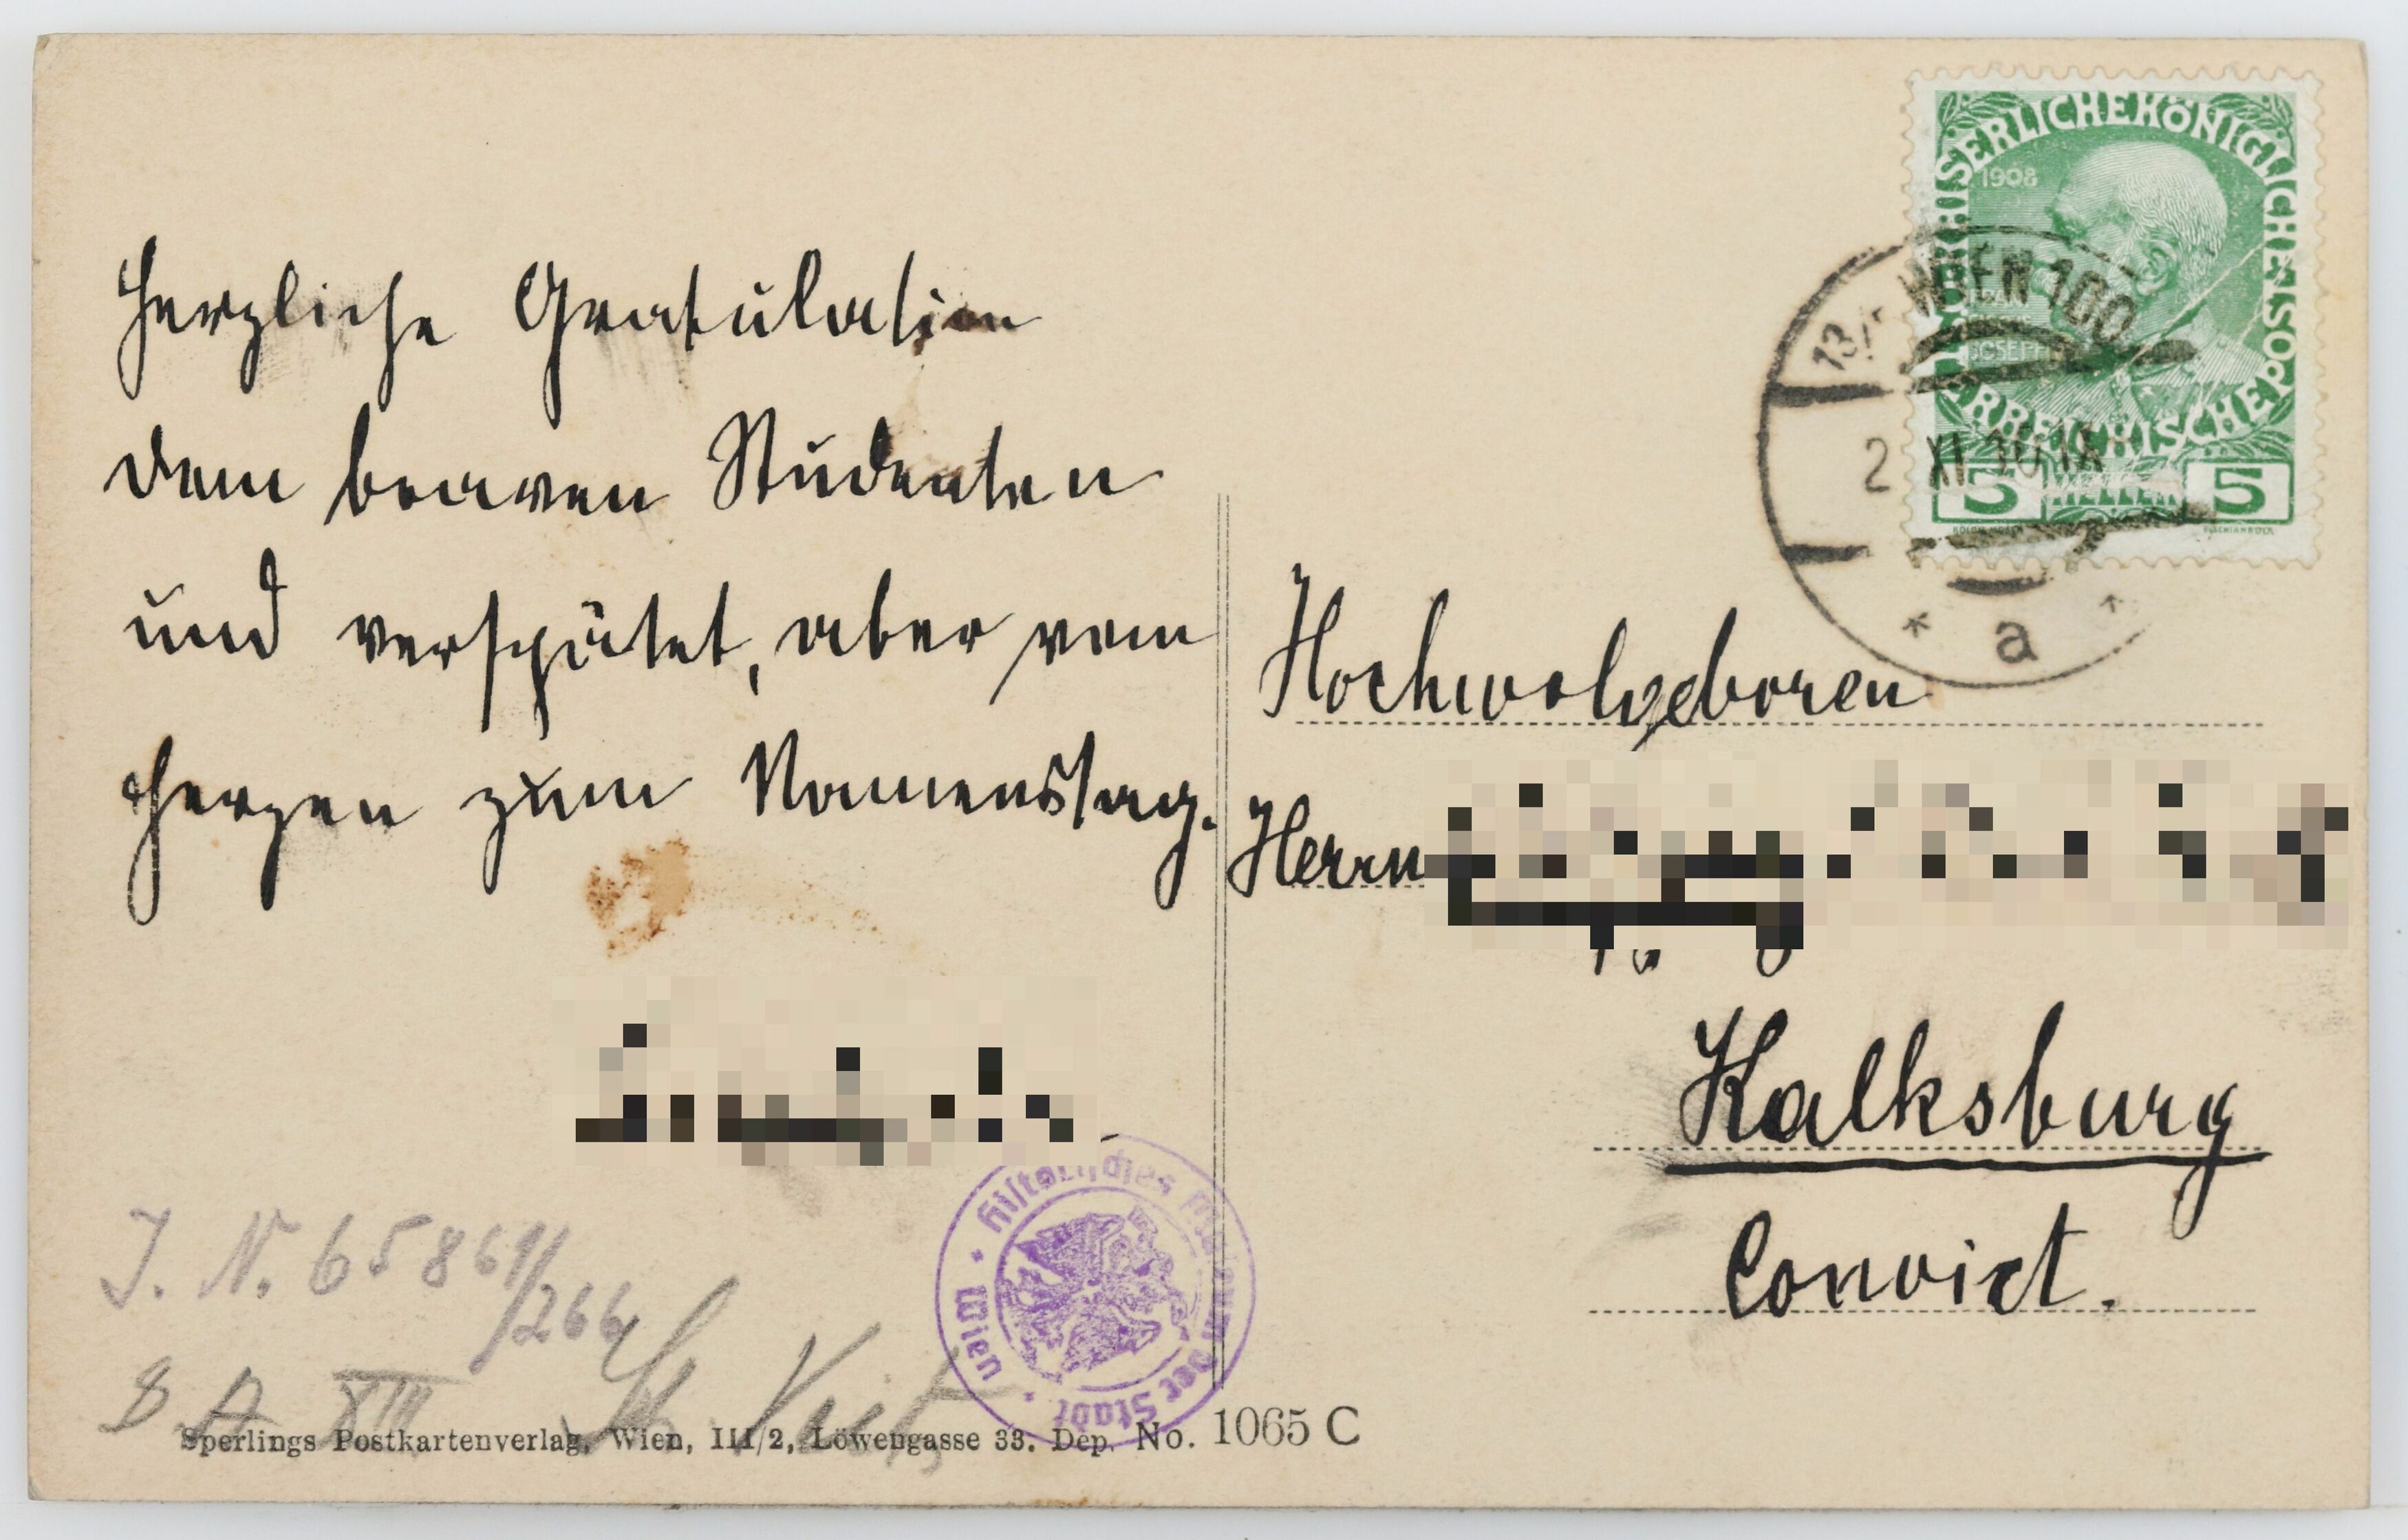 Herzliche Gratulation
dem braven Studenten
und verspätet, aber vom
Herzen zum Namenstag.
KAISERLICHE KÖNIGLICHE ÖSTERREICHISCHE POST
1908
JOSEPH
5 HELLER 5
13/1 WIEN 100
2 XI 10 IX
* a *
Hochwolgeboren
Herrn
Kalksburg
Convict.
Historisches Museum der Stadt Wien
J. N. 65861/266
XIII St. Veit
Sperlings Postkartenverlag, Wien, III/2, Löwengasse 33. Dep. No. 1065 C